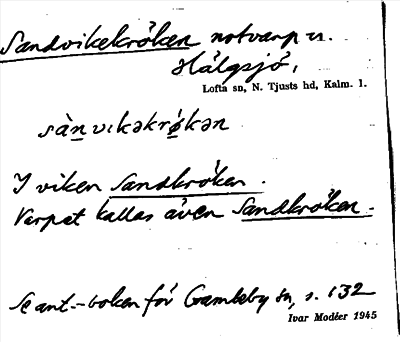 Sandvikekröken notvarp u.
Hälgsjö,
Lofta sn, N. Tjusts hd, Kalm. l.
sàn vikəkrǿkən
I viken Sandkröken.
Varpet kallas även Sandkröken.
Se ant.-boken för Gamleby sn, s. 132
Ivar Modéer 1945